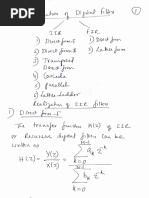 Realization of Digital Filters
1
IIR
FIR
1) Direct form-I
2) Direct form-II
3) Transposed Direct form
4) Cascade
5) parallel
6) Lattice Ladder
1) Direct form
2) Cascade
3) Lattice
Realization of IIR filters
1) Direct form-I
The transfer function H(z) of IIR
or Recursive digital filter can be
written as
H(z) = Y(z)/X(z) =